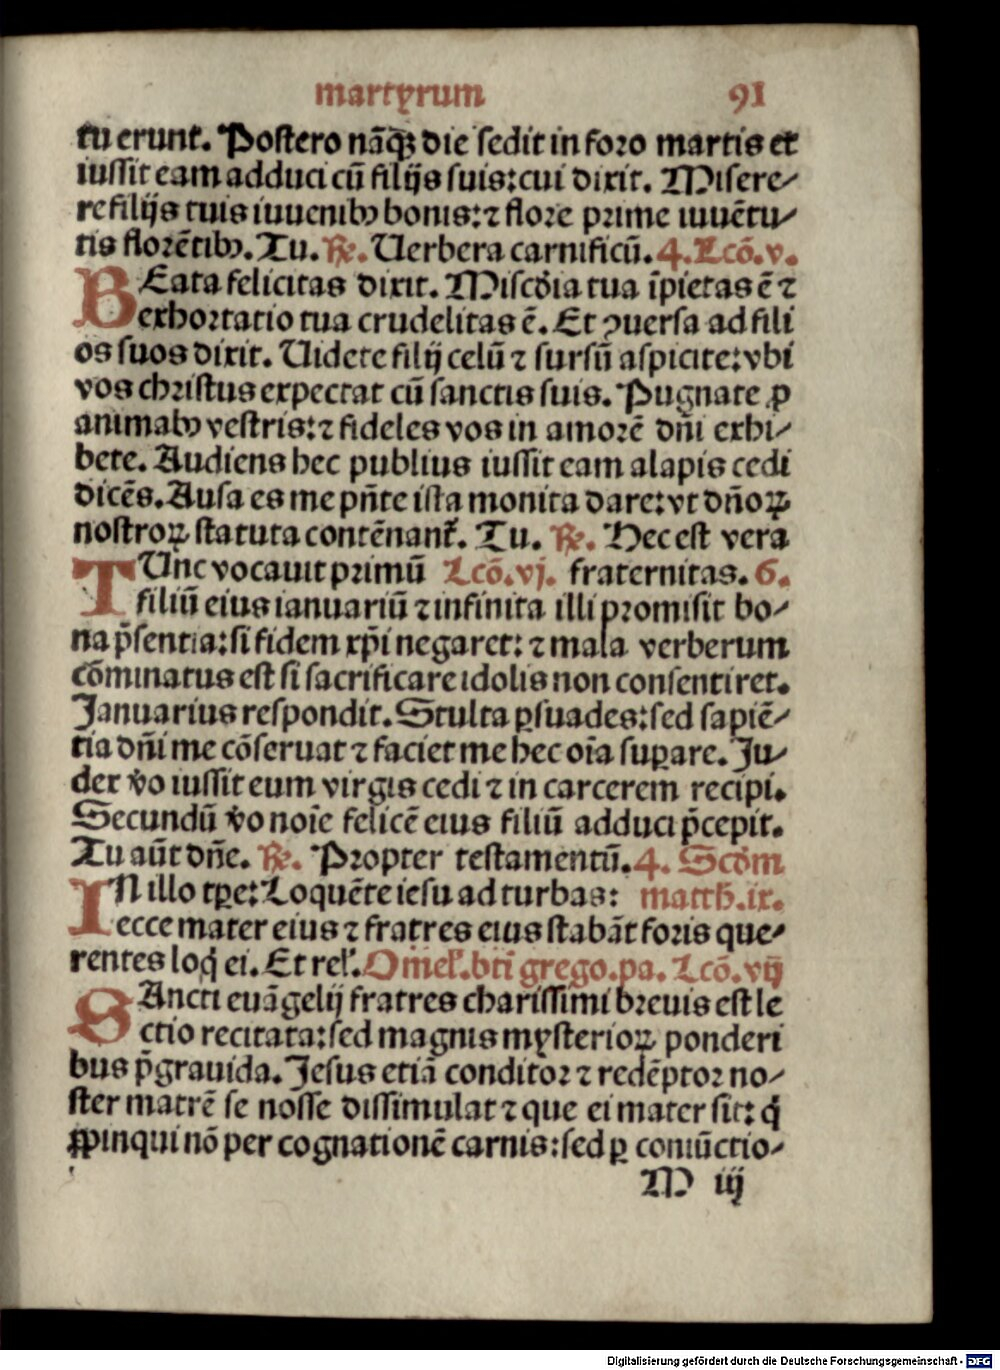 martyrum 91
tu erunt. Postero nāqꝫ die sedit in foro martis et
iussit eam adduci cū filijs suis: cui dixit. Misere⸗
re filijs tuis iuuenibꝰ bonis: ⁊ flore prime iuuētu⸗
tis florētibꝰ. Tu. ℞. Uerbera carnificū. 4. Lcō. v.
BEata felicitas dixit. Miscd̄ia tua īpietas ē ⁊
exhortatio tua crudelitas ē. Et ꝯuersa ad fili
os suos dixit. Uidete filij celū ⁊ sursū aspicite: vbi
vos christus expectat cū sanctis suis. Pugnate ꝓ
animabꝰ vestris: ⁊ fideles vos in amorē dn̄i exhi⸗
bete. Audiens hec publius iussit eam alapis cedi
dicēs. Ausa es me pn̄te ista monita dare: vt dn̄oꝝ
nostroꝝ statuta contēnant᷑. Tu. ℞. Hec est vera
TUnc vocauit primū Lcō. vj. fraternitas. 6.
filiū eius ianuariū ⁊ infinita illi promisit bo⸗
na p̄sentia: si fidem xp̄i negaret: ⁊ mala verberum
cōminatus est si sacrificare idolis non consentiret.
Januarius respondit. Stulta ꝑsuades: sed sapiē⸗
tia dn̄i me cōseruat ⁊ faciet me hec oīa suꝑare. Ju⸗
dex v̄o iussit eum virgis cedi ⁊ in carcerem recipi.
Secundū v̄o noīe felicē eius filiū adduci p̄cepit.
Tu aūt dn̄e. ℞. Propter testamentū. 4. Scd̄m
IN illo tꝑe: Loquēte iesu ad turbas: matth. ix.
ecce mater eius ⁊ fratres eius stabāt foris que⸗
rentes loq̄ ei. Et rel̓. Omel̓. bt̄i grego. pa. Lcō. vij
SAncti euāgelij fratres charissimi breuis est le
ctio recitata: sed magnis mysterioꝝ ponderi
bus p̄grauida. Jesus etiā conditor ⁊ redēptor no⸗
ster matrē se nosse dissimulat ⁊ que ei mater sit: q̄
ꝓpinqui nō per cognationē carnis: sed ꝑ coniūctio⸗
M iij
Digitalisierung gefördert durch die Deutsche Forschungsgemeinschaft - DFG